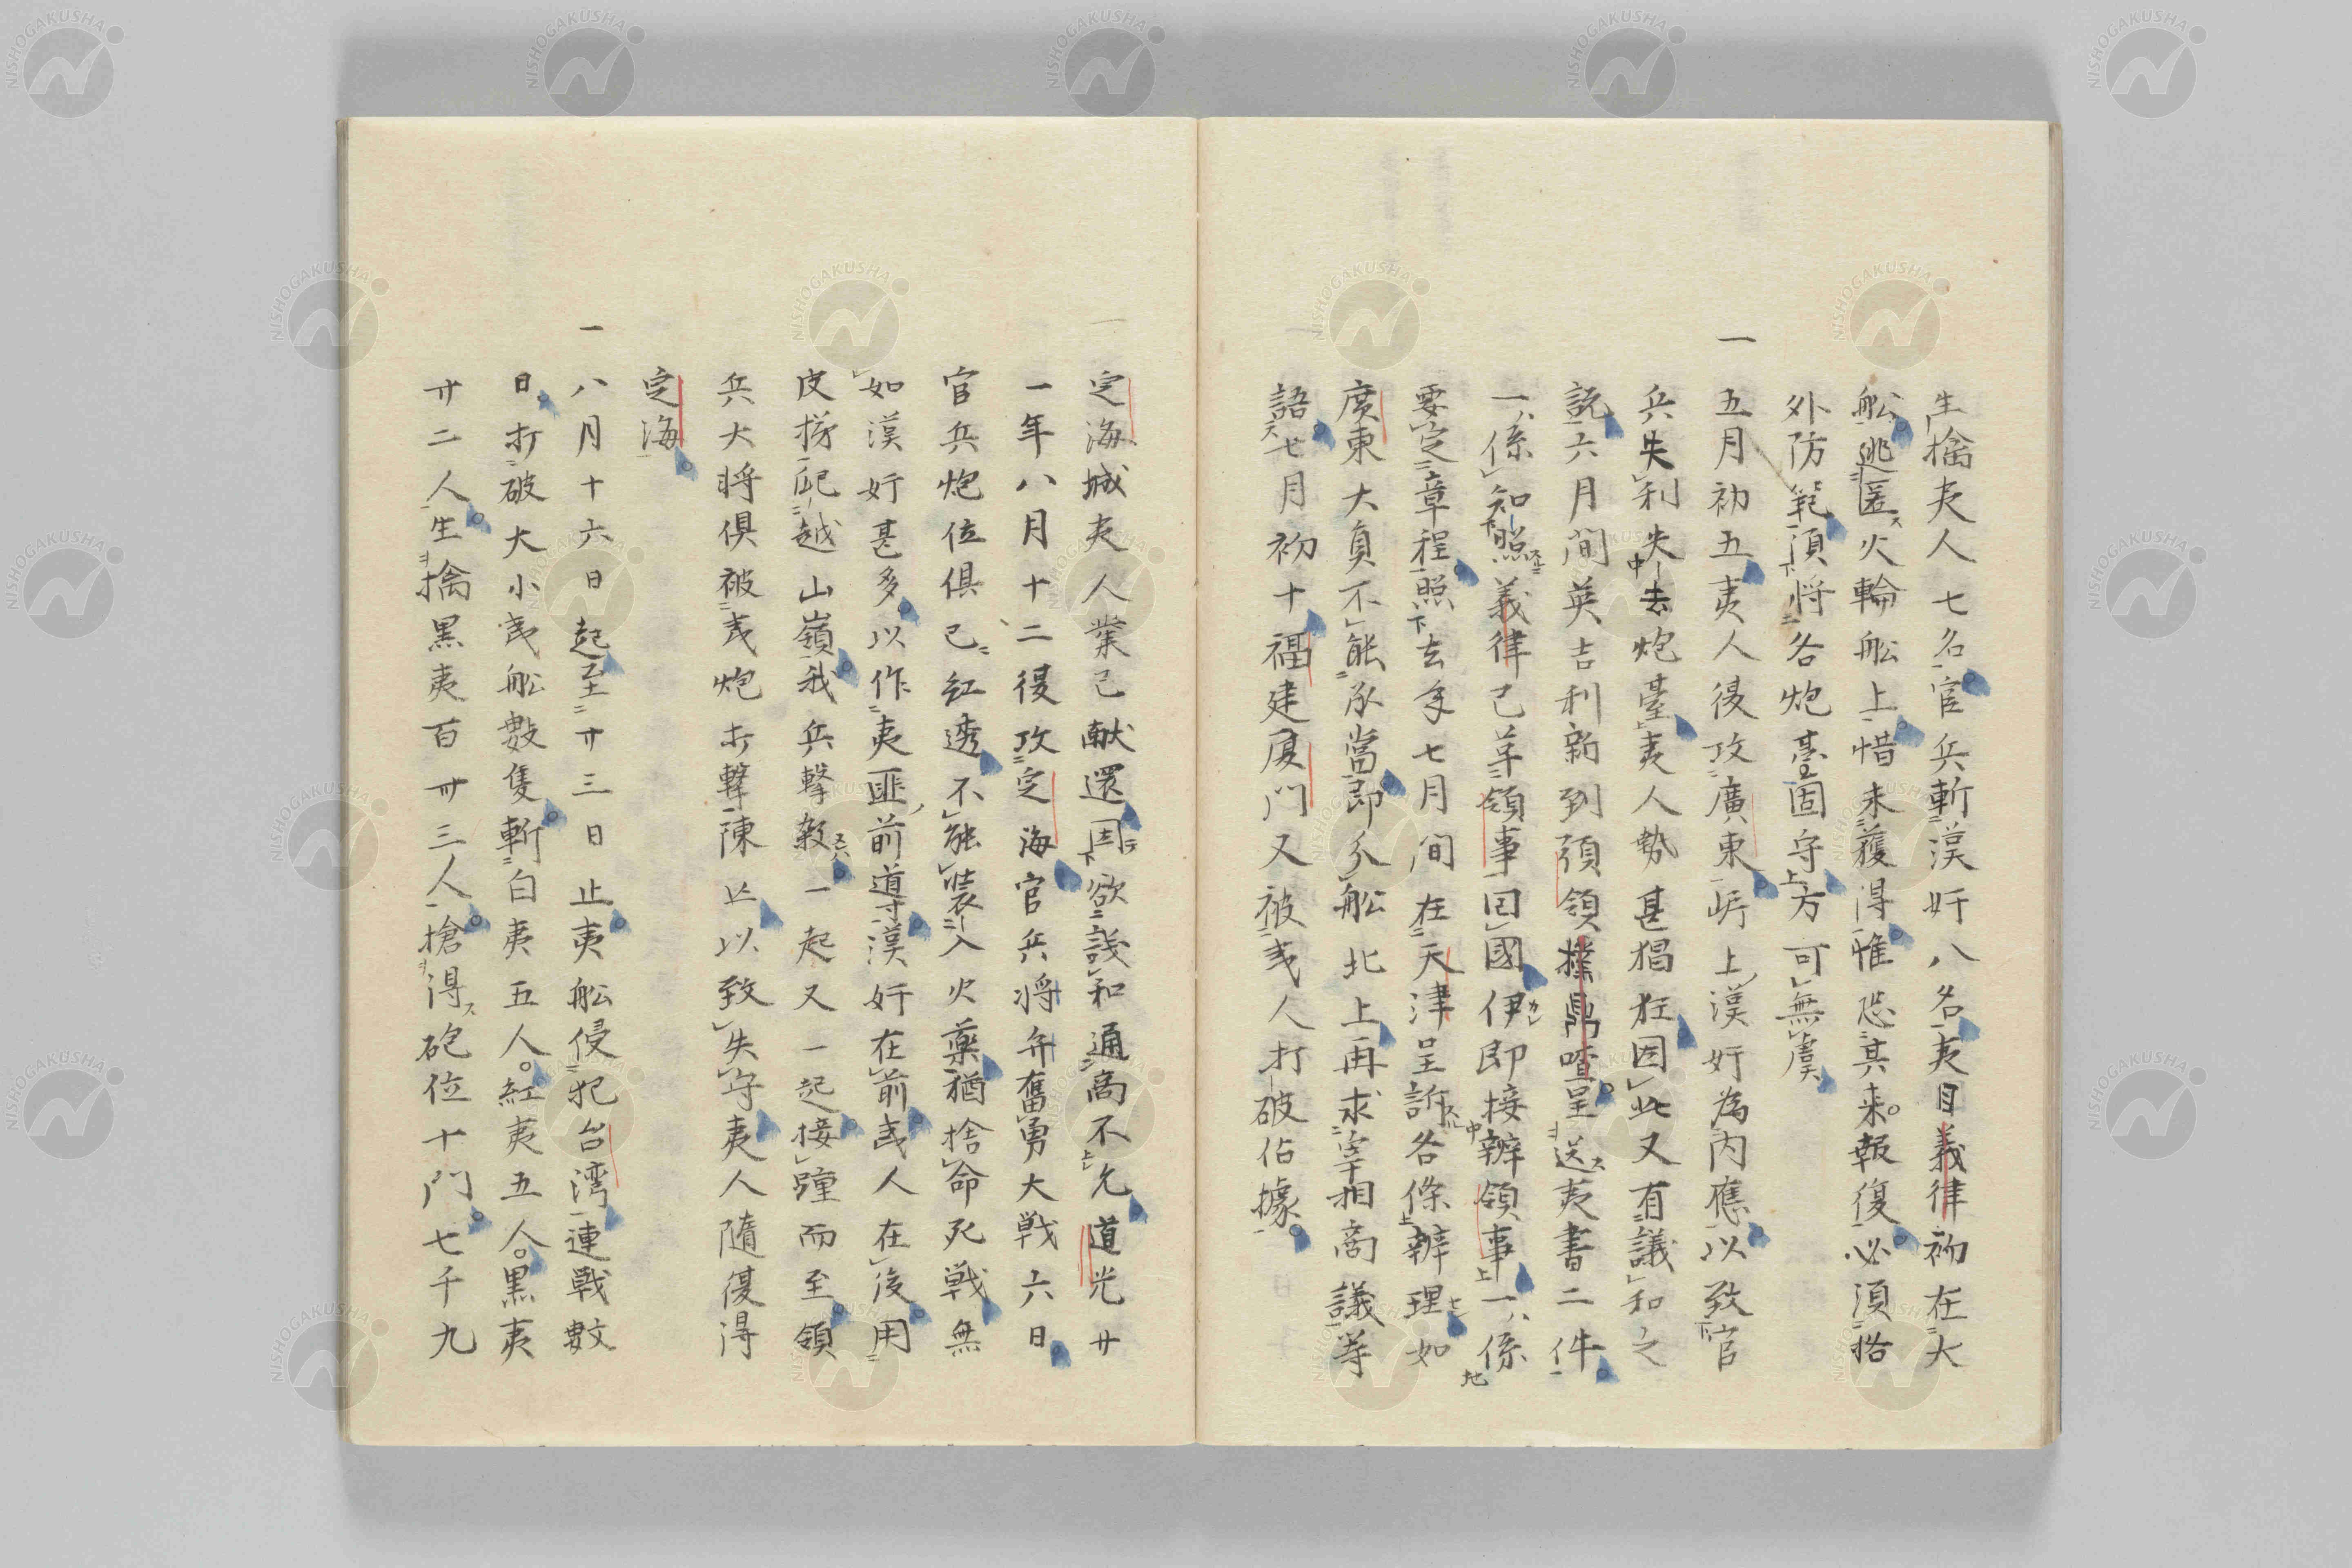 生擒夷人七名官兵斬漢奸八名夷目義律初在大
舩逃匿火輪舩上惜未獲得惟恐其来報復必須格
外防範須将各炮臺固守方可無虞
一五月初五夷人復攻廣東岍上漢奸為内應以致官
兵失利失去炮臺夷人勢甚猖狂因此又有議和之
説六月間英吉利新到領璞鼎喳呈送夷書二件
一係知照義律已革領事回國伊即接辦領事一係
要定章程照去年七月間在天津呈訴各條辦理如
廣東大員不能承當即分舩北上再求宰相商議等
語七月初十福建厦门又被夷人打破佔據
一定海城夷人業已献還因欲議和通商不允道光廿
一年八月十二復攻定海官兵将弁奮勇大戦六日
官兵炮位俱已紅透不能装入火藥猶捨命死戦無
如漢奸甚多以作夷匪前導漢奸在前夷人在後用
皮 越山嶺我兵擊殺一起又一起接踵而至領
兵大将俱被夷炮打擊陳亡以致失守夷人隨復得
定海
一八月十六日起至廿三日止夷舩侵犯台湾連戦数
日打破大小夷舩數隻斬白夷五人紅夷五人黒夷
廿二人生擒黒夷百卅三人搶得砲位十門七千九
NISHOGAKUSHA